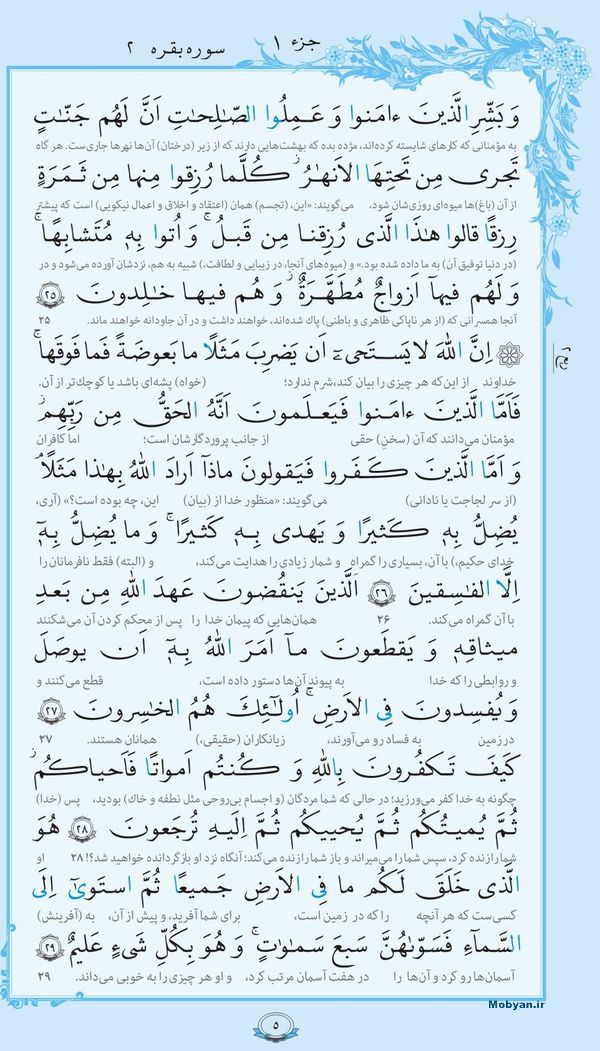 جزء ۱ سوره بقره ۲
وَ بَشِّرِ الَّذينَ ءامَنوا وَ عَمِلُوا الصّـٰلِحـٰتِ اَنَّ لَهُم جَنّـٰتٍ
به مؤمنانی که کارهای شایسته کرده‌اند، مژده بده که بهشت‌هایی دارند که از زیر (درختان) آن‌ها نهرها جاری‌ست. هر گاه
تَجری مِن تَحتِهَا الاَنهـٰرُ ۖ كُلَّما رُزِقوا مِنها مِن ثَمَرَةٍ
از آن (باغ)ها میوه‌ای روزی‌شان شود، می‌گویند: «این، (تجسم) همان (اعتقاد و اخلاق و اعمال نیکویی) است که پیشتر
رِزقًا قالوا هـٰذَا الَّذی رُزِقنا مِن قَبلُ ۖ وَ اُتوا بِهٖ مُتَشابِهًا ۖ
(در دنیا توفیق آن) به ما داده شده بود.» و (میوه‌های آنجا، در زیبایی و لطافت،) شبیه به هم، نزدشان آورده می‌شود و در
وَ لَهُم فيهآ اَزواجٌ مُطَهَّرَةٌ ۖ وَ هُم فيها خـٰلِدونَ ﴿۲۵﴾
آنجا همسرانی که (از هر ناپاکی ظاهری و باطنی) پاک شده‌اند، خواهند داشت و در آن جاودانه خواهند ماند. ۲۵
۞ اِنَّ اللهَ لا يَستَحیٖٓ اَن يَضرِبَ مَثَلًا ما بَعوضَةً فَما فَوقَها ۚ
خداوند از این‌که هر چیزی را بیان کند، شرم ندارد؛ (خواه) پشه‌ای باشد یا کوچک‌تر از آن.
فَاَمَّا الَّذينَ ءامَنوا فَيَعلَمونَ اَنَّهُ الحَقُّ مِن رَبِّهِم ۖ
مؤمنان می‌دانند که آن (سخن) حقی از جانب پروردگارشان است؛ اما کافران
وَ اَمَّا الَّذينَ كَفَروا فَيَقولونَ ماذآ اَرادَ اللهُ بِهـٰذا مَثَلًا ۘ
(از سر لجاجت یا نادانی) می‌گویند: «منظور خدا از (بیان) این، چه بوده است؟» (آری،
يُضِلُّ بِهٖ كَثيرًا وَ يَهدی بِهٖ كَثيرًا ۚ وَ ما يُضِلُّ بِهٖٓ
خدای حکیم،) با آن، بسیاری را گمراه و شمار زیادی را هدایت می‌کند، و (البته) فقط نافرمانان را
اِلَّا الفـٰسِقينَ ﴿۲۶﴾ اَلَّذينَ يَنقُضونَ عَهدَ اللهِ مِن بَعدِ
با آن گمراه می‌کند. ۲۶ همان‌هایی که پیمان خدا را پس از محکم کردن آن می‌شکنند
ميثاقِهٖ وَ يَقطَعونَ مآ اَمَرَ اللهُ بِهٖٓ اَن يوصَلَ
و روابطی را که خدا به پیوند آن‌ها دستور داده است، قطع می‌کنند و
وَ يُفسِدونَ فِی الاَرضِ ۚ اُولـٰٓئِكَ هُمُ الخـٰسِرونَ ﴿۲۷﴾
در زمین به فساد رو می‌آورند، زیانکاران (حقیقی،) همانان هستند. ۲۷
كَيفَ تَكفُرونَ بِاللهِ وَ كُنتُم اَمواتًا فَاَحياكُم ۖ
چگونه به خدا کفر می‌ورزید؛ در حالی که شما مردگان (و اجسام بی‌روحی مثل نطفه و خاک) بودید، پس (خدا)
ثُمَّ يُميتُكُم ثُمَّ يُحييكُم ثُمَّ اِلَيهِ تُرجَعونَ ﴿۲۸﴾ هُوَ
شما را زنده کرد، سپس شما را می‌میراند و باز شما را زنده می‌کند؛ آنگاه نزد او بازگردانده خواهید شد؟! ۲۸ او
الَّذی خَلَقَ لَكُم ما فِی الاَرضِ جَميعًا ثُمَّ استَوىٰٓ اِلَى
کسی‌ست که هر آنچه را که در زمین است، برای شما آفرید، و پیش از آن، به (آفرینش)
السَّمآءِ فَسَوّىٰهُنَّ سَبعَ سَمـٰوٰتٍ ۚ وَ هُوَ بِكُلِّ شَیءٍ عَليمٌ ﴿۲۹﴾
آسمان‌ها رو کرد و آن‌ها را در هفت آسمان مرتب کرد، و او هر چیزی را به خوبی می‌داند. ۲۹
Mobyan.ir
۵